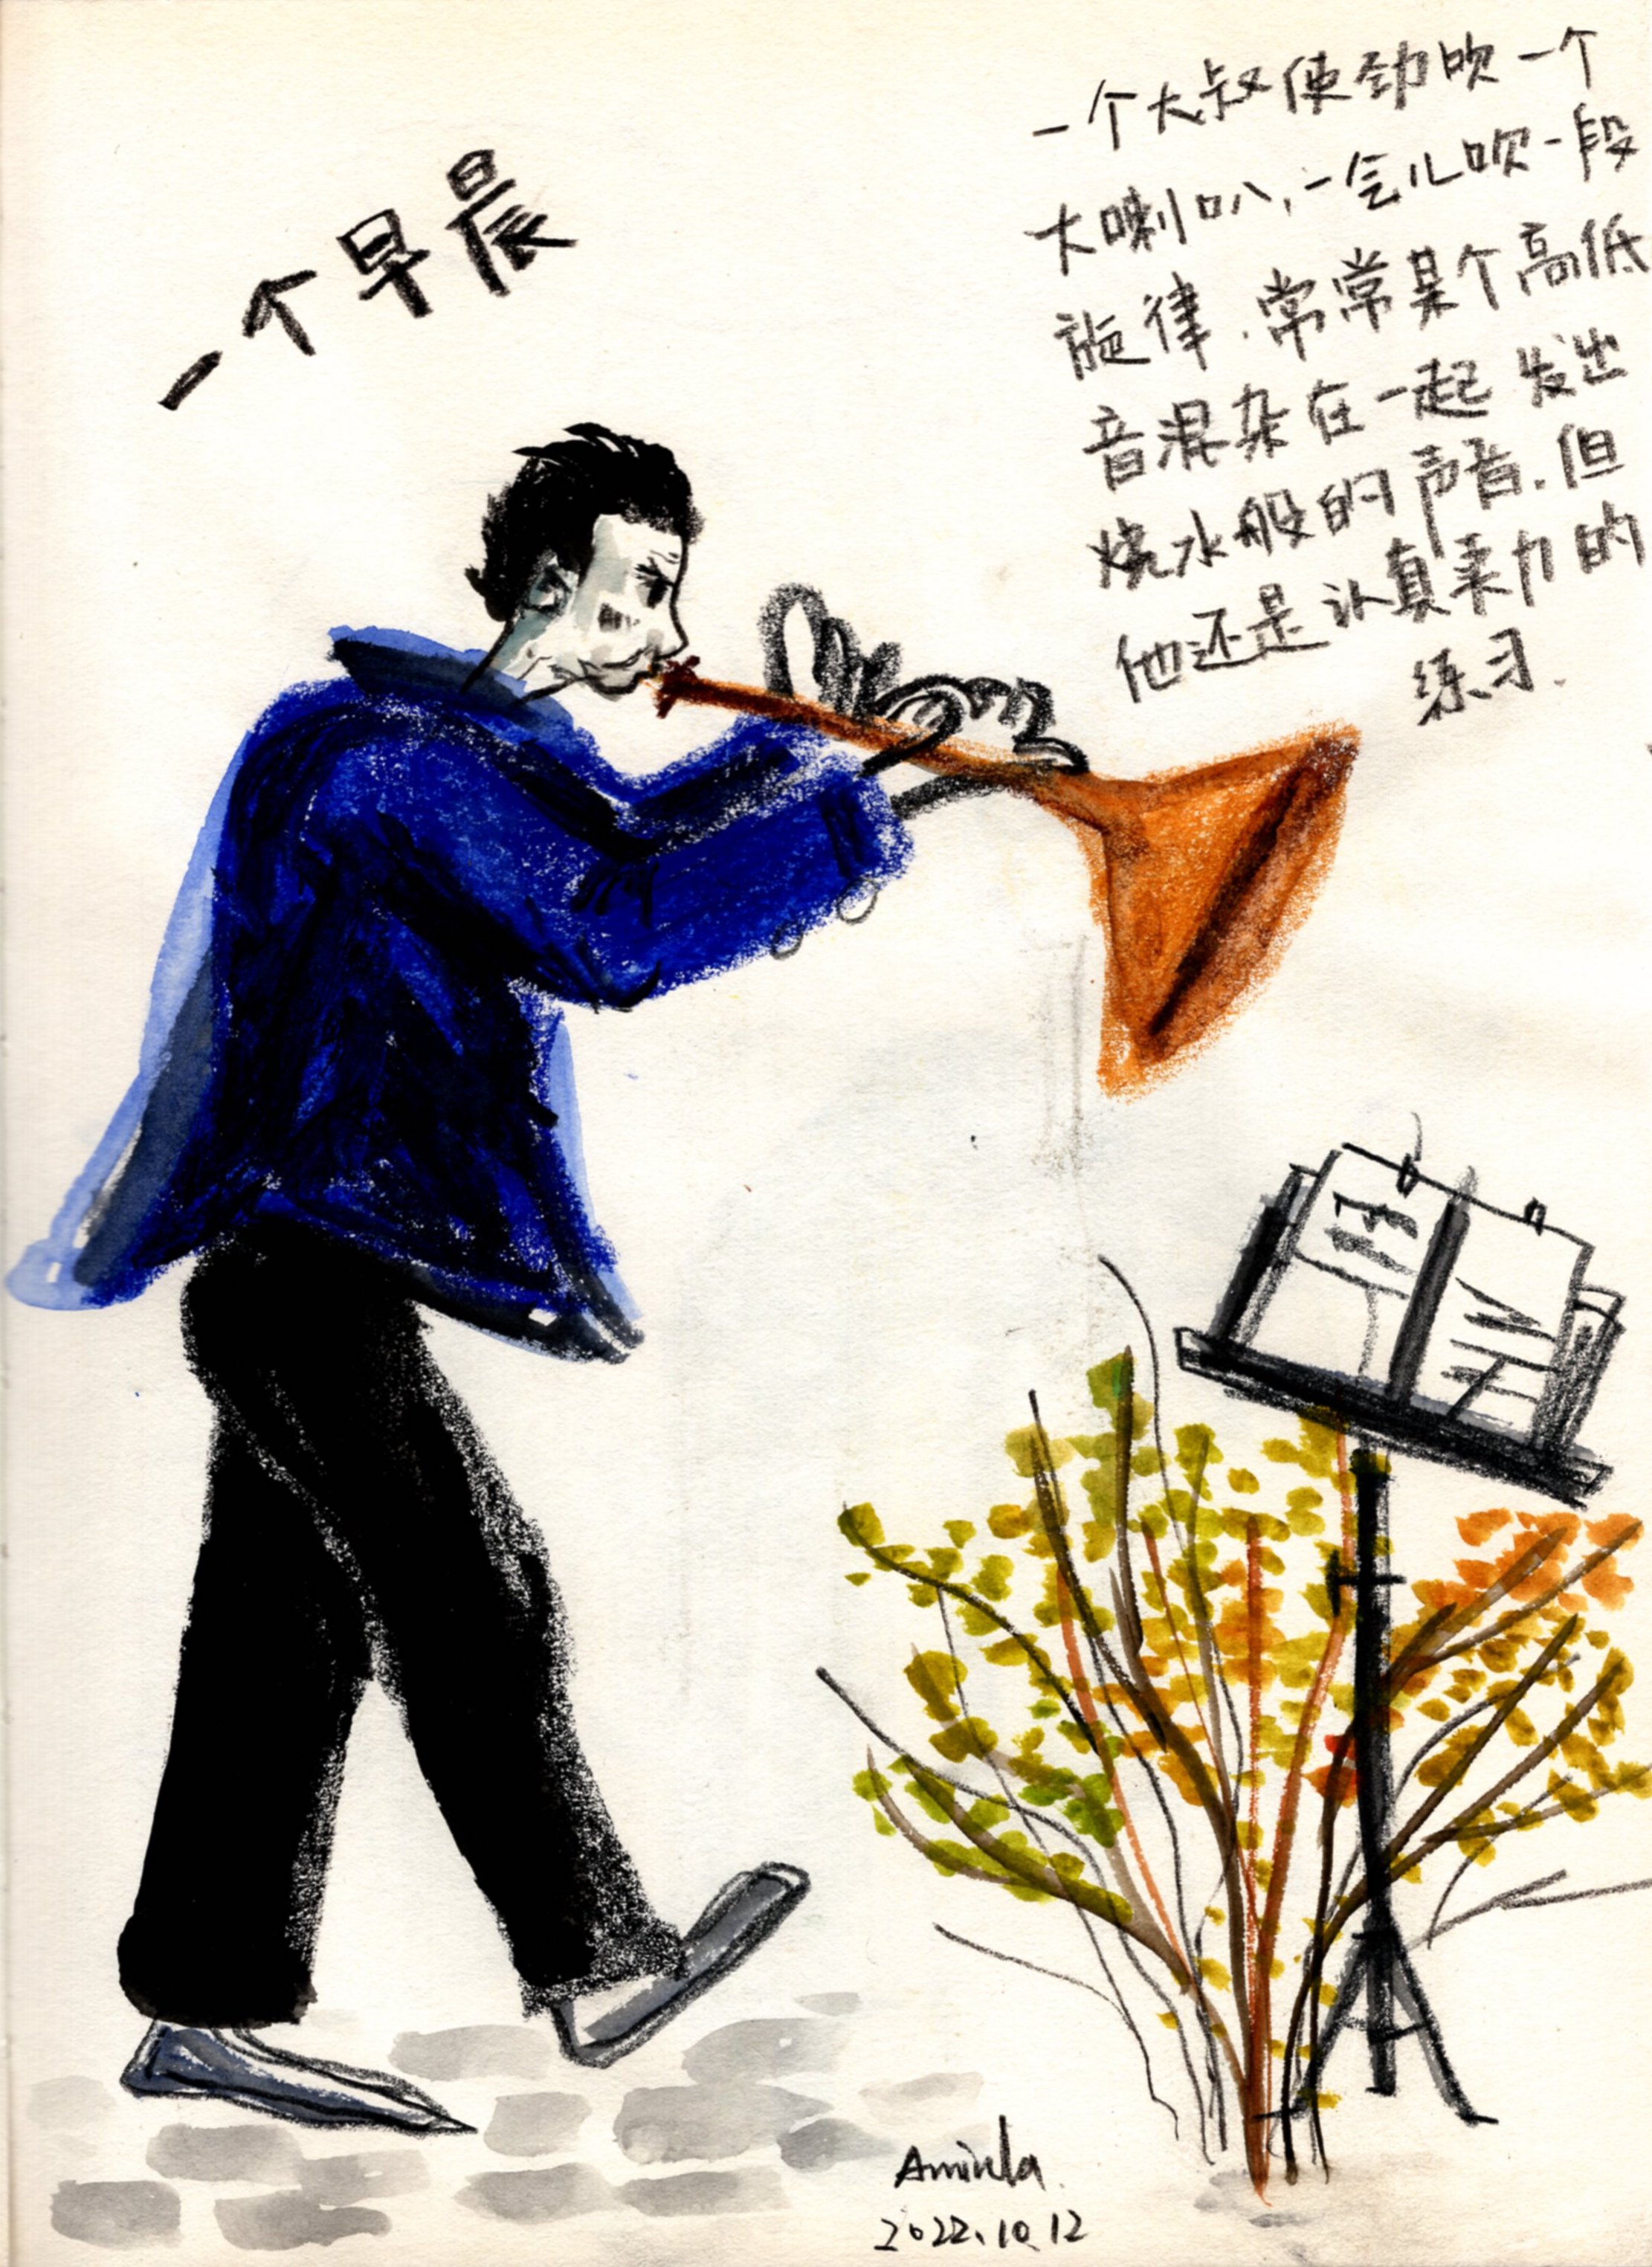 一个早晨
一个大叔使劲吹一个
大喇叭,一会儿吹一段
旋律.常常某个高低
音混杂在一起发出
烧水般的声音.但
他还是认真卖力的
练习.
Amiula
2022.10.12